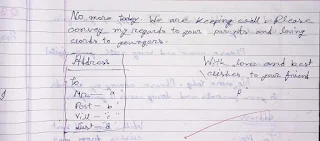 No more today. We are keeping well. Please
convey my regards to your parents and loving
words to youngers.
With love and best
wishes to your friend
P
Address
To,
Mr. - a
Post - b
Vill - c
Dist - d